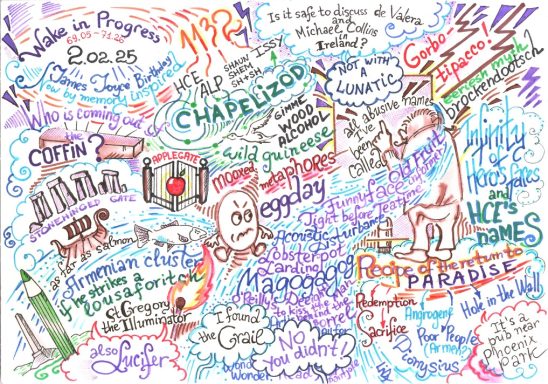 Wake in Progress
69.05 - 71.25
2.02.25
James Joyce Birthday
inspired
Who is coming out of
the
COFFIN?
STONEHINGED
GATE
APPLEGATE
as far as salmon
Armenian cluster
if he strikes a
lousaforitch
St Gregory
the Illuminator
also Lucifer
113?
HCE
ALP
SHAUN
SHEM
SH+SH
ISSY
CHAPELIZOD
GIMME
WOOD
ALCOHOL
wild guineese
mooxed
metaphores
eggday
Is it safe to discuss de Valera
and
Michael Collins
in
Ireland?
NOT WITH A
LUNATIC
all abusive names
I've
been
called
Old Fruit
Informer
Funnyface
Tight before Teatime
Acoustic Disturbance
Lobster-pot
Lardling
Magogagog
I found
the
Grail
No
you
didn't?
Gorbo-
tipacco!
brockendootsch
Infinity
of
Hero's faces
and
HCE's
NAMES
Recipe of the return to
PARADISE
Redemption
Sacrifice
Androgene
Poor People
(Armen?)
Dionysius
Hole in the Wall
It's a
pub near
Phoenix
Park